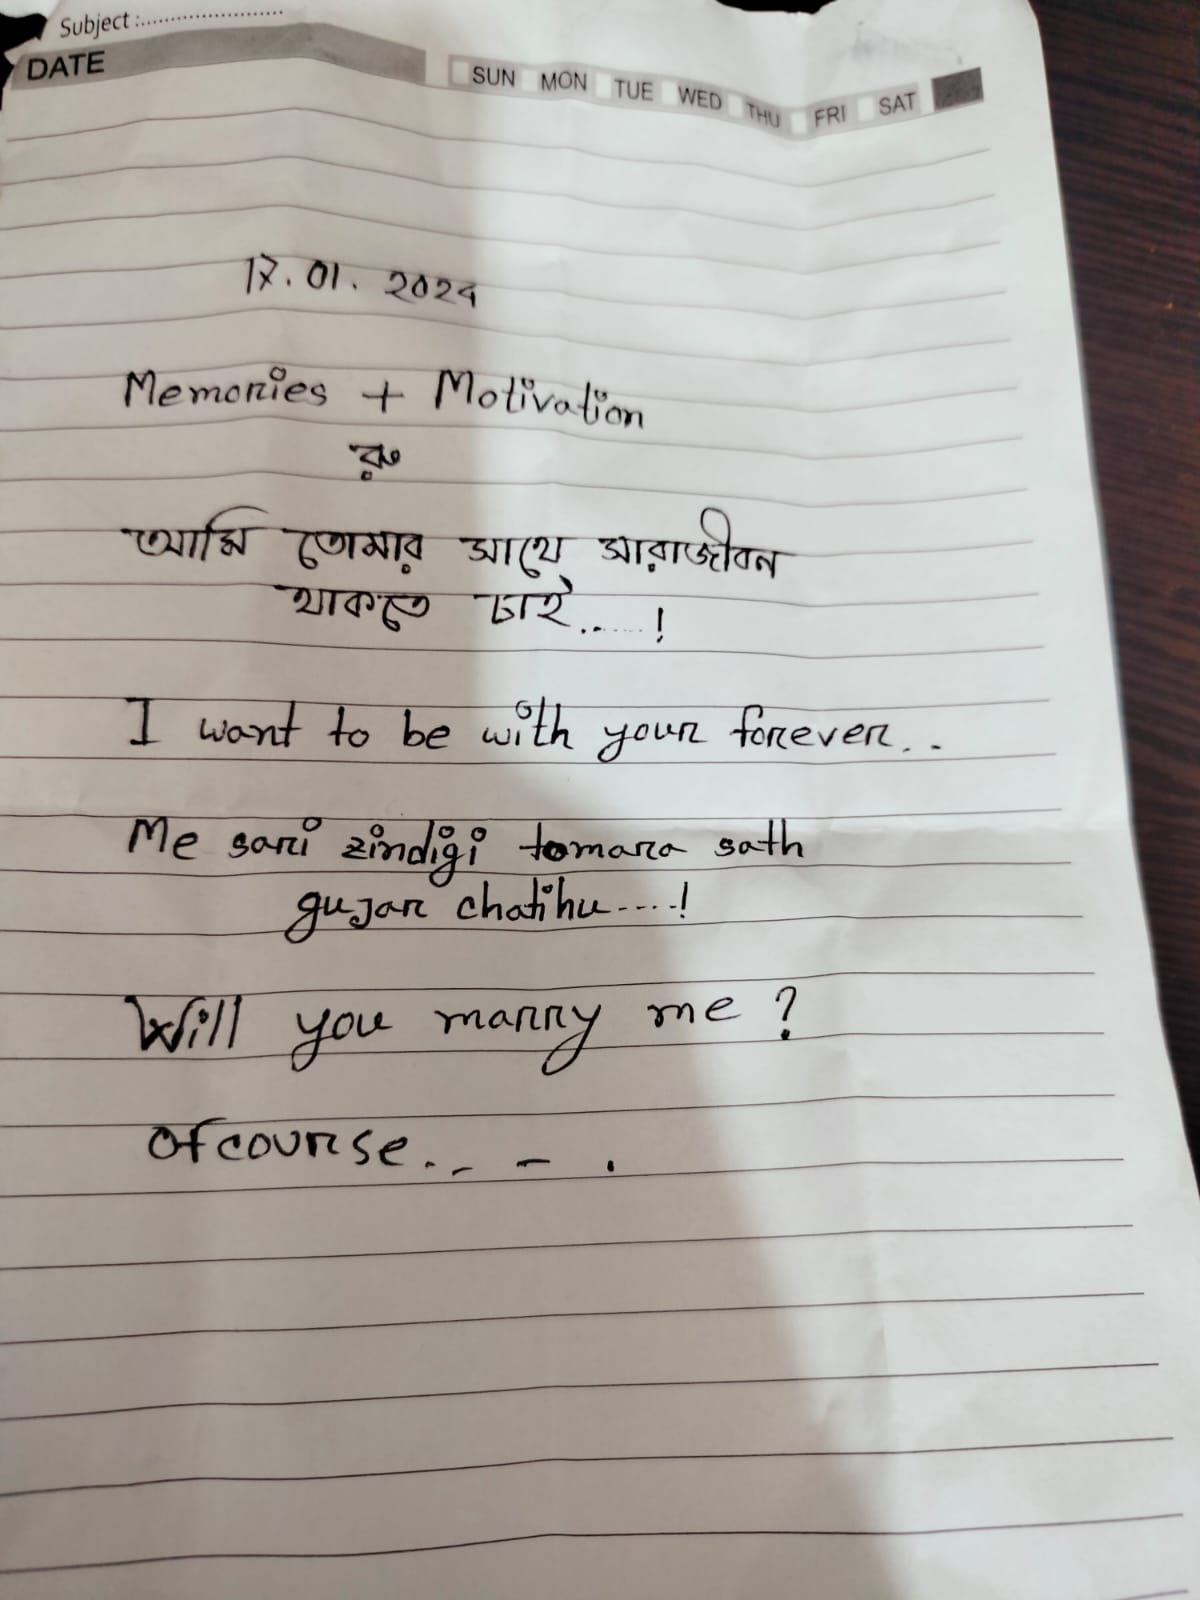 Subject :........................
DATE SUN MON TUE WED THU FRI SAT
17.01.2024
Memories + Motivation
রু
আমি তোমার সাথে সারাজীবন
থাকতে চাই......!
I want to be with your forever..
Me sari zindigi tomara sath
gujar chatihu....!
Will you marry me ?
Ofcourse.. - .